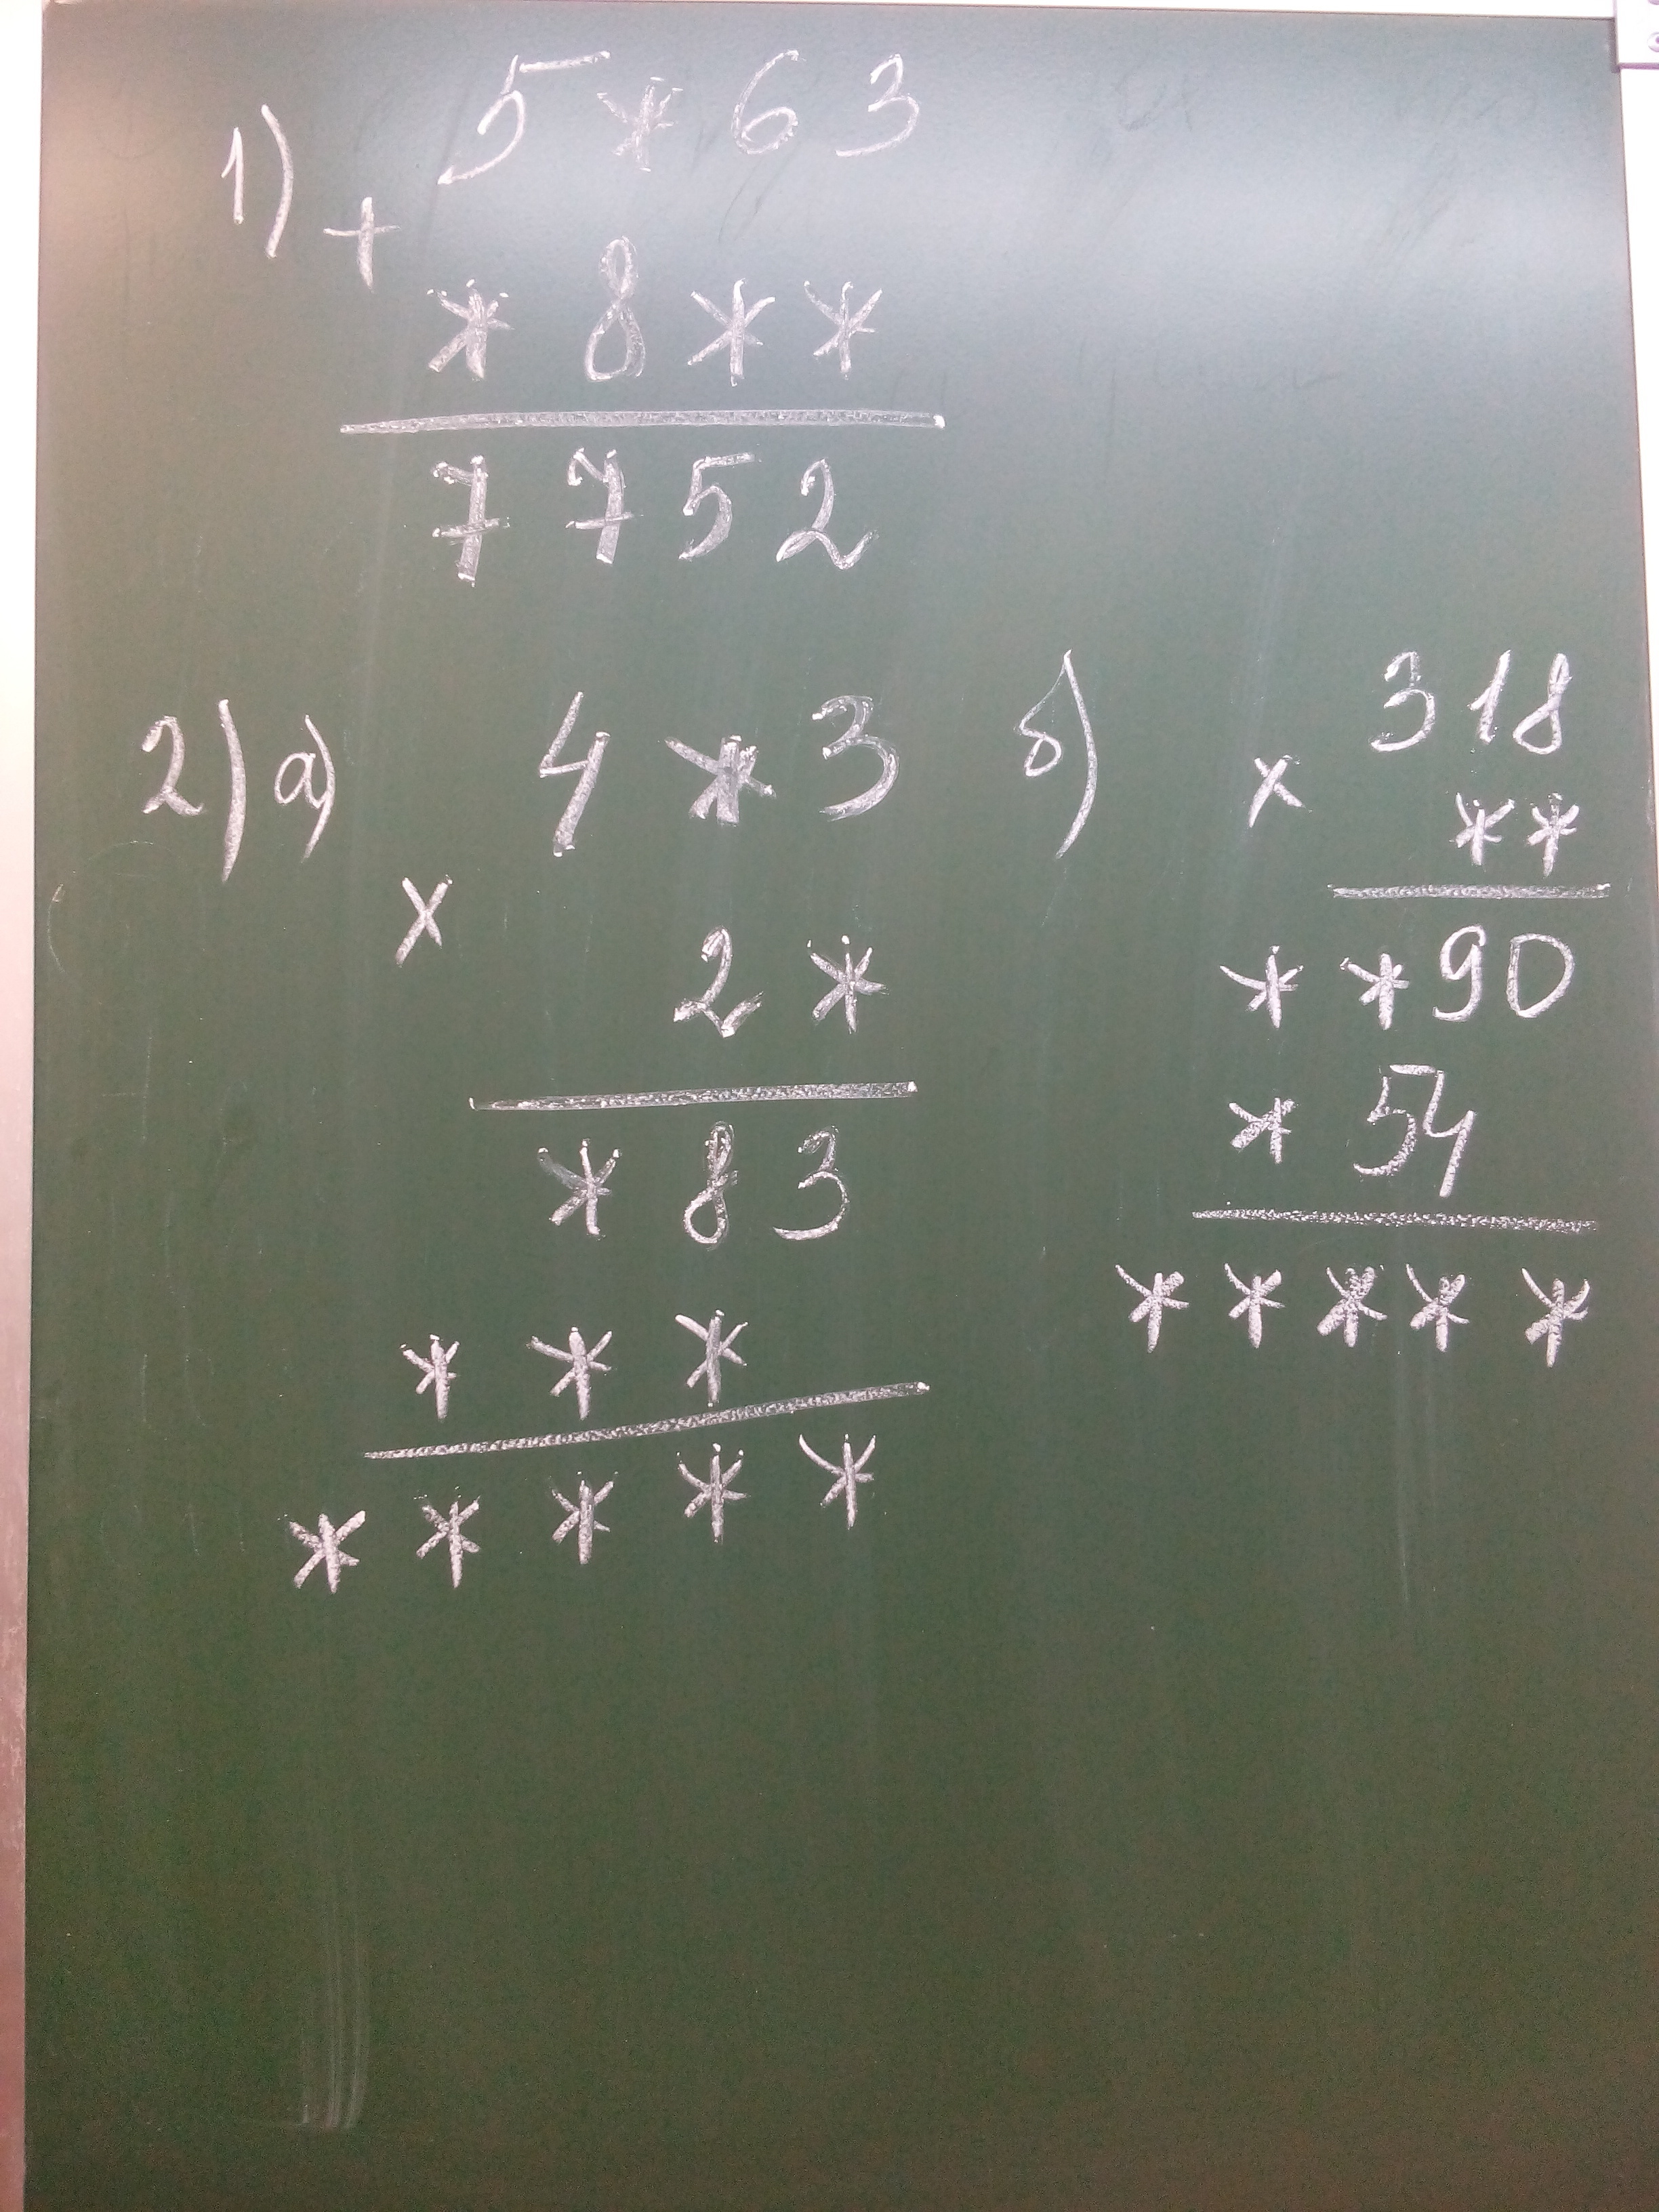 1) 5 * 6 3
+
* 8 * *
7 7 5 2
2) а) 4 * 3
×
2 *
* 8 3
* * *
* * * * *
б) 3 1 8
×
* *
* * 9 0
* 5 4
* * * * *